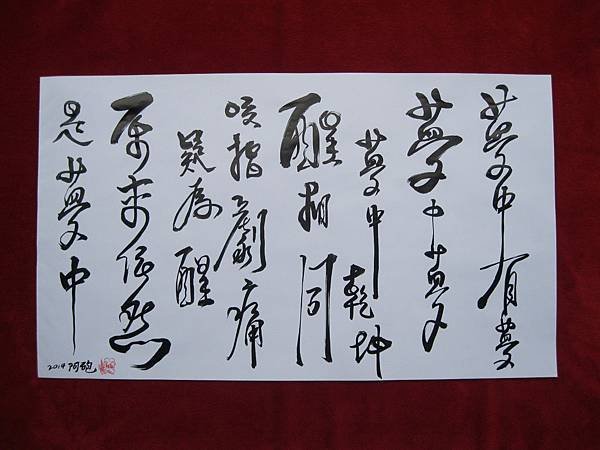 夢中有夢
夢中夢
夢中乾坤
醒相同
咬指劇痛
疑為醒
原來依然
是夢中
2019 阿砲